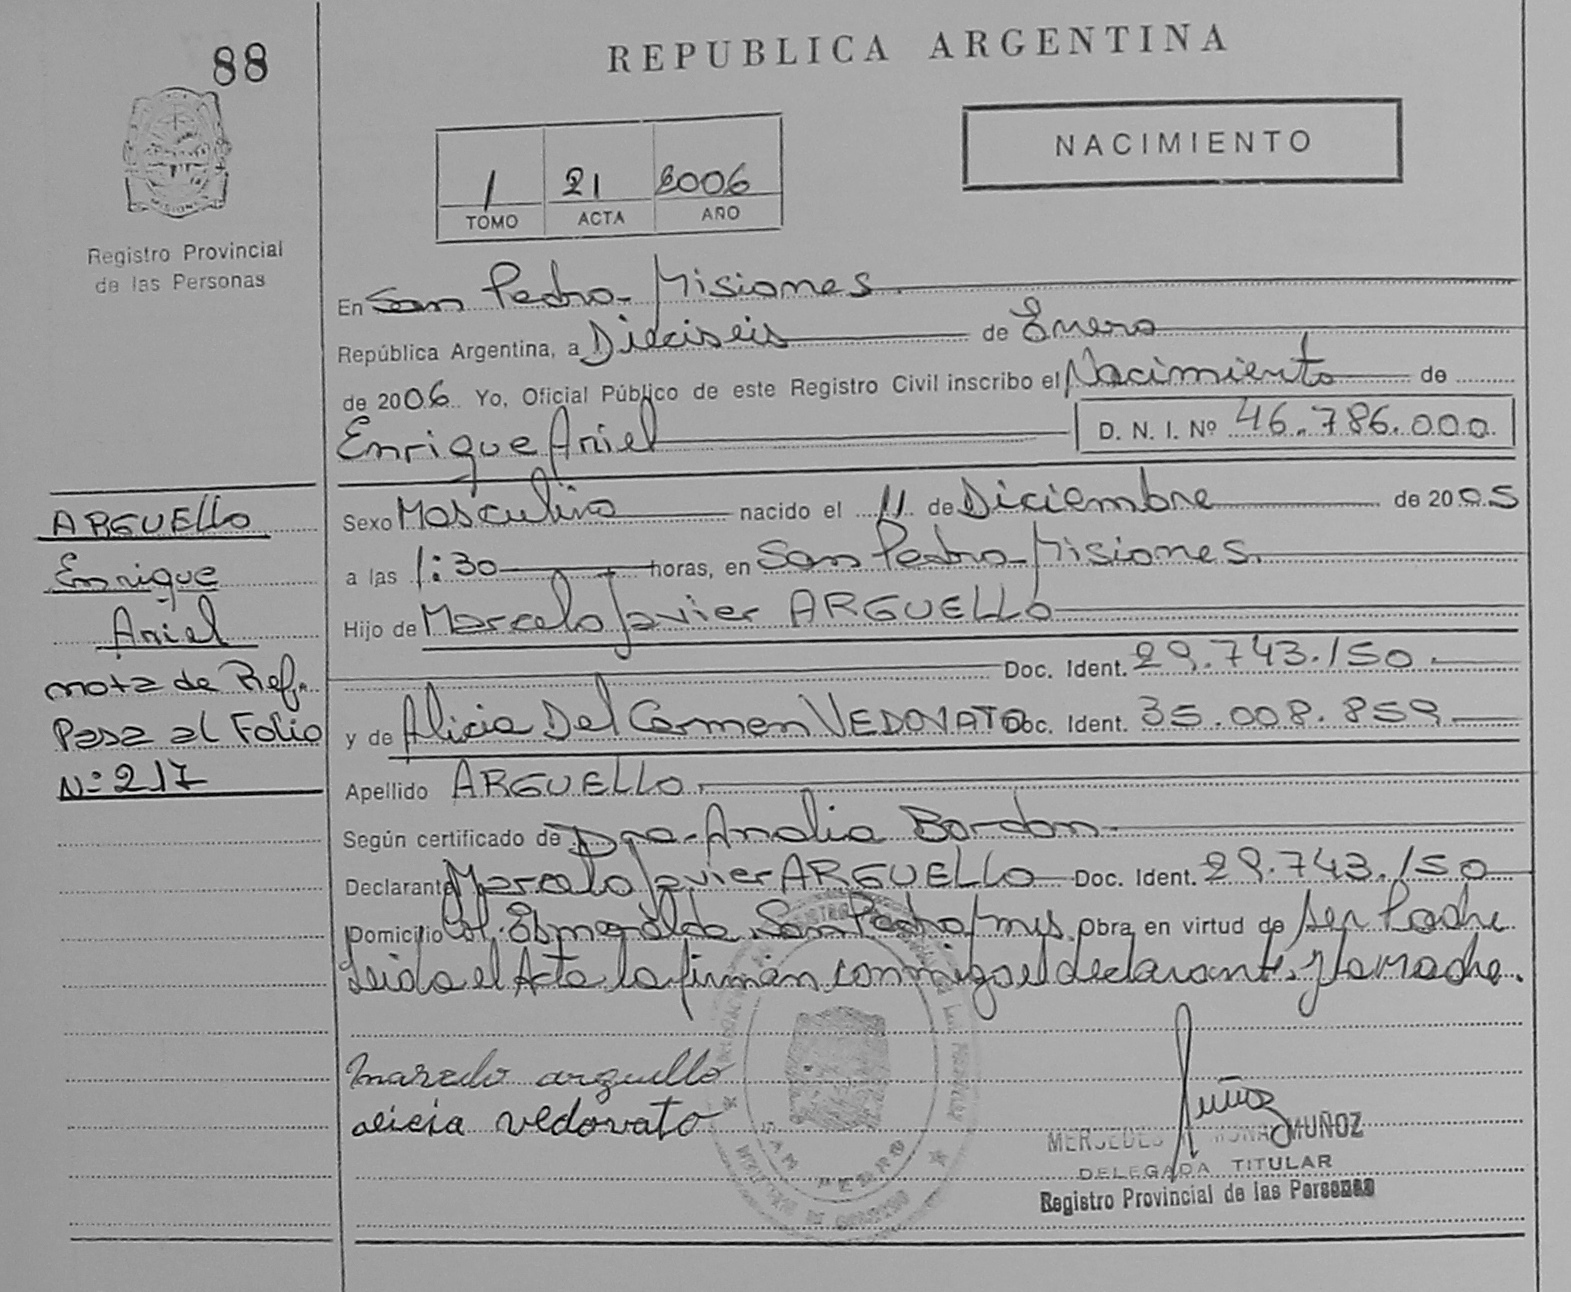 88
REPUBLICA ARGENTINA
NACIMIENTO
1 21 2006
TOMO ACTA AÑO
MISIONES
Registro Provincial
de las Personas
En San Pedro - Misiones
República Argentina, a Dieciseis de Enero
de 2006 Yo, Oficial Público de este Registro Civil inscribo el Nacimiento de
Enrique Ariel D. N. I. Nº 46.786.000
Sexo Masculino nacido el 11 de Diciembre de 2005
a las 1:30 horas, en San Pedro - Misiones.
Hijo de Marcelo Javier ARGUELLO
Doc. Ident. 29.743.150
y de Alicia Del Carmen VEDOVATO Doc. Ident. 35.008.859
Apellido ARGUELLO
Según certificado de Dra. Analia Bordon
Declarante Marcelo Javier ARGUELLO Doc. Ident. 29.743.150
Domicilio Col. Esmeralda San Pedro Mns. Obra en virtud de ser Padre
Leida el Acta la firman conmigo el declarante y la madre.
ARGUELLO
Enrique
Ariel
nota de Ref.
Pasa al Folio
N: 217
marcelo arguello
alicia vedovato
SAN PEDRO
MUÑOZ
DELEGADA TITULAR
Registro Provincial de las Personas